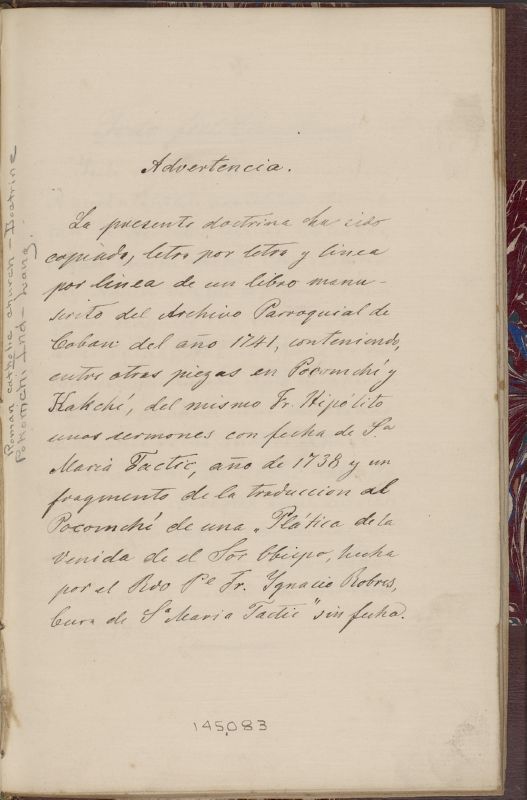 Advertencia.
La presente doctrina ha sido
copiada, letra por letra y linea
por linea de un libro manu-
scrito del Archivo Parroquial de
Coban del año 1741, conteniendo,
entre otras piezas en Pocomchí y
Kakchí, del mismo Fr. Hipólito
unos sermones con fecha de Sª
Maria Tactic, año de 1738 y un
fragmento de la traduccion al
Pocomchí de una „Plática de la
Venida de el Sõr Obispo, hecha
por el Rdo Pe Fr. Ygnacio Robres,
Cura de Sª Maria Tactic" sin fecha.
145,083
Roman catholic church - Doctrine
Pokomchi Ind - Lang.